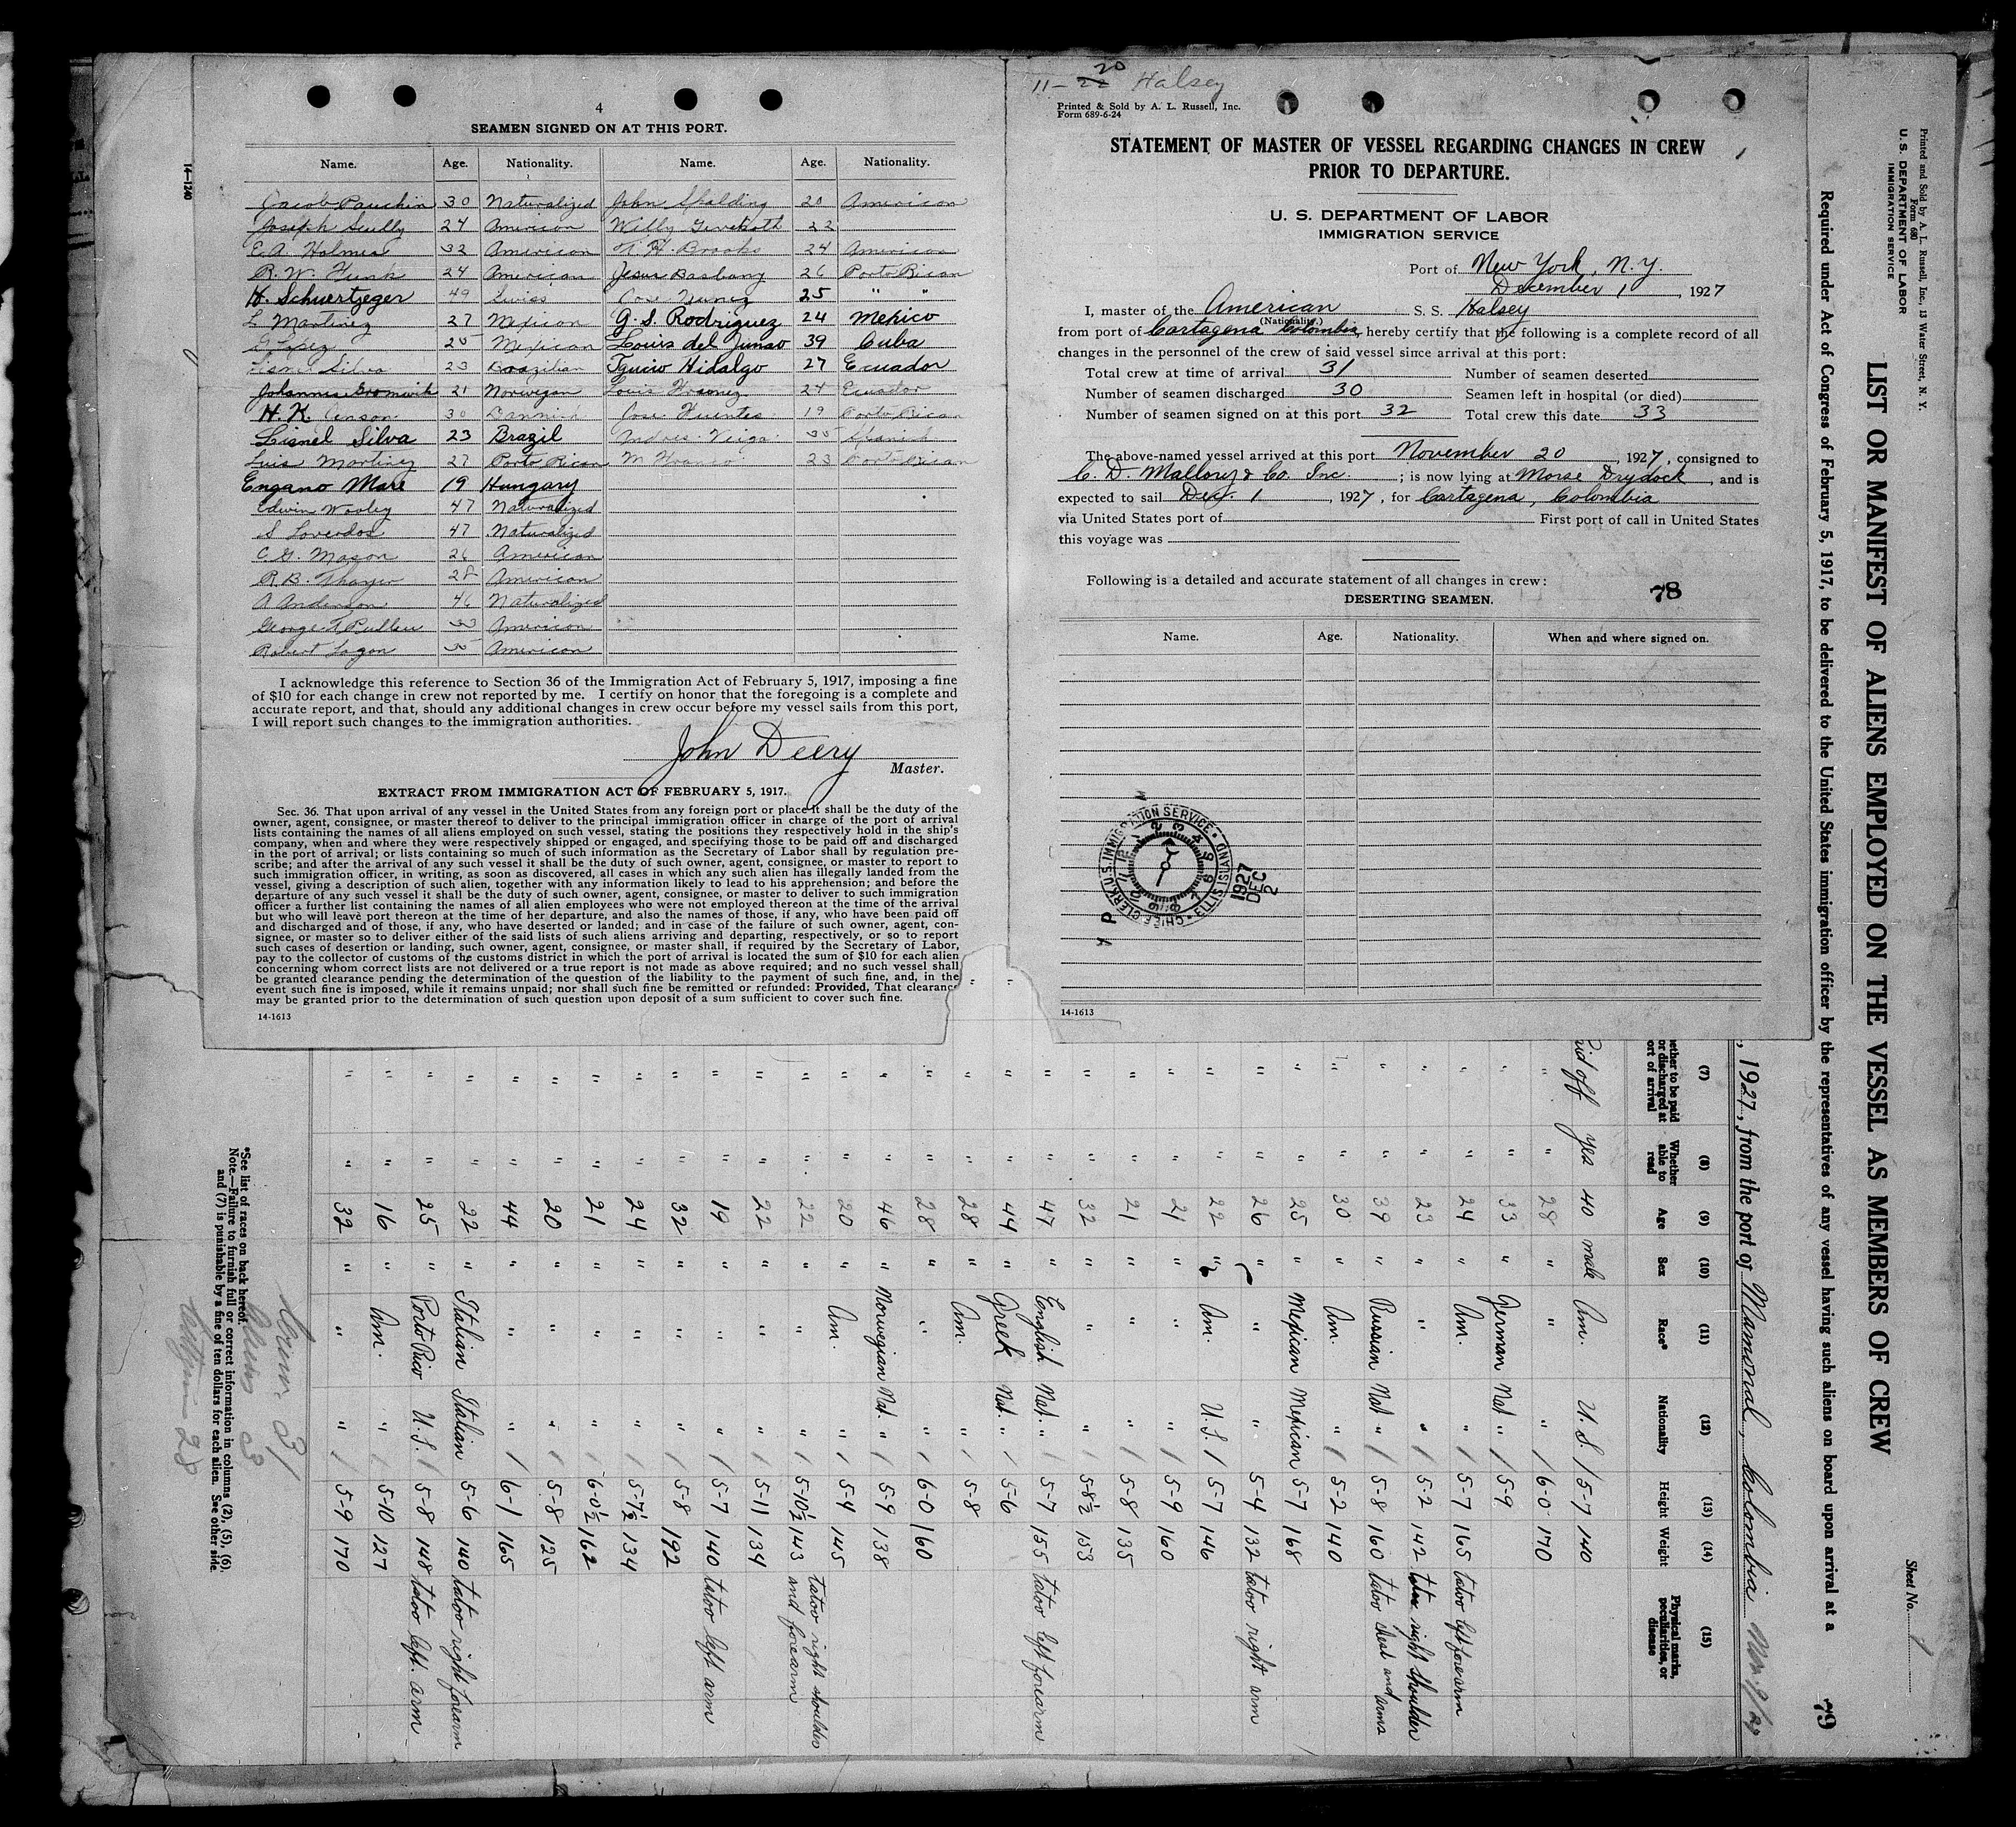 4
SEAMEN SIGNED ON AT THIS PORT.
Name. Age. Nationality. Name. Age. Nationality.
Jacob Pauchin 30 Naturalized John Spalding 20 American
Joseph Scully 24 American Willy 22
E. A. Holmes 32 American H. Brooks 24 American
R. W. Funk 24 American Jesus Basbany 26 Porto Rican
H. Schuertzeger 49 Swiss Jose Nunez 25 " "
L Martinez 27 Mexican G. S. Rodriguez 24 Mexico
G Lopez 25 Mexican Louis del Junso 39 Cuba
Silva 23 Brazilian Tgucio Hidalgo 27 Ecuador
Johannes 21 Norwegan Louis 24 Ecuador
H. K. 30 Jose Fuentes 19 Porto Rican
Lisnel Silva 23 Brazil Andres Veiga 35 Spanish
Luis Martinez 27 Porto Rican M Franco 23 Porto Rican
Engano Mare 19 Hungary
Edwin Wooley 47 Naturalized
S Loverdos 47 Naturalized
C. G. Mason 26 American
R. B. Thayer 28 American
A Anderson 46 Naturalized
George T. Pullen 33 American
Robert Logan American
I acknowledge this reference to Section 36 of the Immigration Act of February 5, 1917, imposing a fine
of $10 for each change in crew not reported by me. I certify on honor that the foregoing is a complete and
accurate report, and that, should any additional changes in crew occur before my vessel sails from this port,
I will report such changes to the immigration authorities.
John Deery
Master.
EXTRACT FROM IMMIGRATION ACT OF FEBRUARY 5, 1917.
Sec. 36. That upon arrival of any vessel in the United States from any foreign port or place it shall be the duty of the
owner, agent, consignee, or master thereof to deliver to the principal immigration officer in charge of the port of arrival
lists containing the names of all aliens employed on such vessel, stating the positions they respectively hold in the ship's
company, when and where they were respectively shipped or engaged, and specifying those to be paid off and discharged
in the port of arrival; or lists containing so much of such information as the Secretary of Labor shall by regulation pre-
scribe; and after the arrival of any such vessel it shall be the duty of such owner, agent, consignee, or master to report to
such immigration officer, in writing, as soon as discovered, all cases in which any such alien has illegally landed from the
vessel, giving a description of such alien, together with any information likely to lead to his apprehension; and before the
departure of any such vessel it shall be the duty of such owner, agent, consignee, or master to deliver to such immigration
officer a further list containing the names of all alien employees who were not employed thereon at the time of the arrival
but who will leave port thereon at the time of her departure, and also the names of those, if any, who have been paid off
and discharged and of those, if any, who have deserted or landed; and in case of the failure of such owner, agent, con-
signee, or master so to deliver either of the said lists of such aliens arriving and departing, respectively, or so to report
such cases of desertion or landing, such owner, agent, consignee, or master shall, if required by the Secretary of Labor,
pay to the collector of customs of the customs district in which the port of arrival is located the sum of $10 for each alien
concerning whom correct lists are not delivered or a true report is not made as above required; and no such vessel shall
be granted clearance pending the determination of the question of the liability to the payment of such fine, and, in the
event such fine is imposed, while it remains unpaid; nor shall such fine be remitted or refunded: Provided, That clearance
may be granted prior to the determination of such question upon deposit of a sum sufficient to cover such fine.
14-1613
14-1240
11-22 20 Halsey
Printed & Sold by A. L. Russell, Inc.
Form 689-6-24
STATEMENT OF MASTER OF VESSEL REGARDING CHANGES IN CREW
PRIOR TO DEPARTURE.
U. S. DEPARTMENT OF LABOR
IMMIGRATION SERVICE
Port of New York, N. Y.
December 1, 1927
I, master of the American S. S. Halsey
(Nationality.)
from port of Cartagena Colombia, hereby certify that the following is a complete record of all
changes in the personnel of the crew of said vessel since arrival at this port:
Total crew at time of arrival 31 Number of seamen deserted
Number of seamen discharged 30 Seamen left in hospital (or died)
Number of seamen signed on at this port 32 Total crew this date 33
The above-named vessel arrived at this port November 20, 1927, consigned to
C. D. Mallory & Co. Inc.; is now lying at Morse Drydock, and is
expected to sail Dec. 1, 1927, for Cartagena, Colombia
via United States port of First port of call in United States
this voyage was
Following is a detailed and accurate statement of all changes in crew:
78
DESERTING SEAMEN.
Name. Age. Nationality. When and where signed on.
CHIEF CLERK, U.S. IMMIGRATION SERVICE ELLIS ISLAND
1927
DEC
2
14-1613
Printed and Sold by A. L. Russell, Inc., 13 Water Street, N. Y.
Form 680
U. S. DEPARTMENT OF LABOR
IMMIGRATION SERVICE
Sheet No. 1
LIST OR MANIFEST OF ALIENS EMPLOYED ON THE VESSEL AS MEMBERS OF CREW
Required under Act of Congress of February 5, 1917, to be delivered to the United States immigration officer by the representatives of any vessel having such aliens on board upon arrival at a
79
, 1927, from the port of Mamonal, Colombia Nov. 9/27
(7) (8) (9) (10) (11) (12) (13) (14) (15)
Whether able to read Age Sex Race* Nationality Height Weight Physical marks, peculiarities, or disease
paid off yes 40 male Am. U. S. 5-7 140
" " 28 " " " 6-0 170
" " 33 " German Nat " 5-9
" " 24 " Am. " 5-7 165 tatoo left forearm
" " 23 " " " 5-2 142 right shoulder
" " 39 " Russian Nat " 5-8 160 tatoo chest and arms
" " 30 " Am. " 5-2 140
" " 25 " Mexican Mexican 5-7 168
" " 26 " " " 5-4 132 tatoo right arm
" " 22 " Am. U. S. 5-7 146
" " 21 " " " 5-9 160
" " 21 " " " 5-8 135
" " 32 " " " 5-8½ 153
" " 47 " English Nat. " 5-7 155 tatoo left forearm
" " 44 " Greek Nat. " 5-6
" " 28 " Am. " 5-8
" " 28 " " " 6-0 160
" " 46 " Norwegian Nat. " 5-9 138
" " 20 " Am. " 5-4 145
" " 22 " " " 5-10½ 143 tatoo right shoulder and forearm
" " 22 " " " 5-11 134
" " 19 " " " 5-7 140 tatoo left arm
" " 32 " " " 5-8 192
" " 24 " " " 5-7½ 134
" " 21 " " " 6-0½ 162
" " 20 " " " 5-8 125
" " 44 " " " 6-1 165
" " 22 " Italian Italian 5-6 140 tatoo right forearm
" " 25 " Porto Rico U. S. 5-8 148 tatoo left arm
" " 16 " Am. " 5-10 127
" " 32 " " " 5-9 170
*See list of races on back hereof.
Note.—Failure to furnish full or correct information in columns (2), (5), (6),
and (7) is punishable by a fine of ten dollars for each alien. See other side.
Crew 31
Aliens 3
28